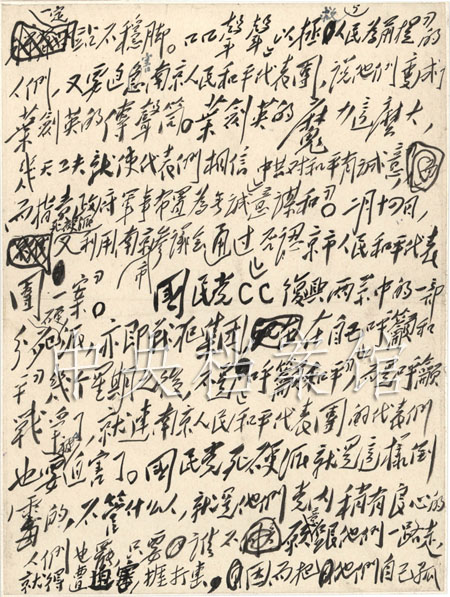 一定站不稳脚。口口声声“以拯救人民为前提”的
人们，又要迫害南京人民和平代表团，说他们“变成了
叶剑英的传声筒”。叶剑英的魔力这么大，
几天工夫就使代表们“相信中共对和平有诚意，
而指责政府军事布置为无诚意谋和”。二月四日，
又利用南京参议会通过“否认京市人民和平代表
团”一案。国民党CC复兴两系中的一部
分死硬派亦即战犯集团
战几个星期之后，不是“呼吁和平”，而是呼吁
了，就连南京人民和平代表团的代表们
也要迫害了。国民党死硬派就是这样倒
的，不管什么人，就是他们党内稍有良心的
人们也要，只要谁不愿跟他们一路走，
就得遭迫害，挨打击，因而把他们自己孤
中央档案馆